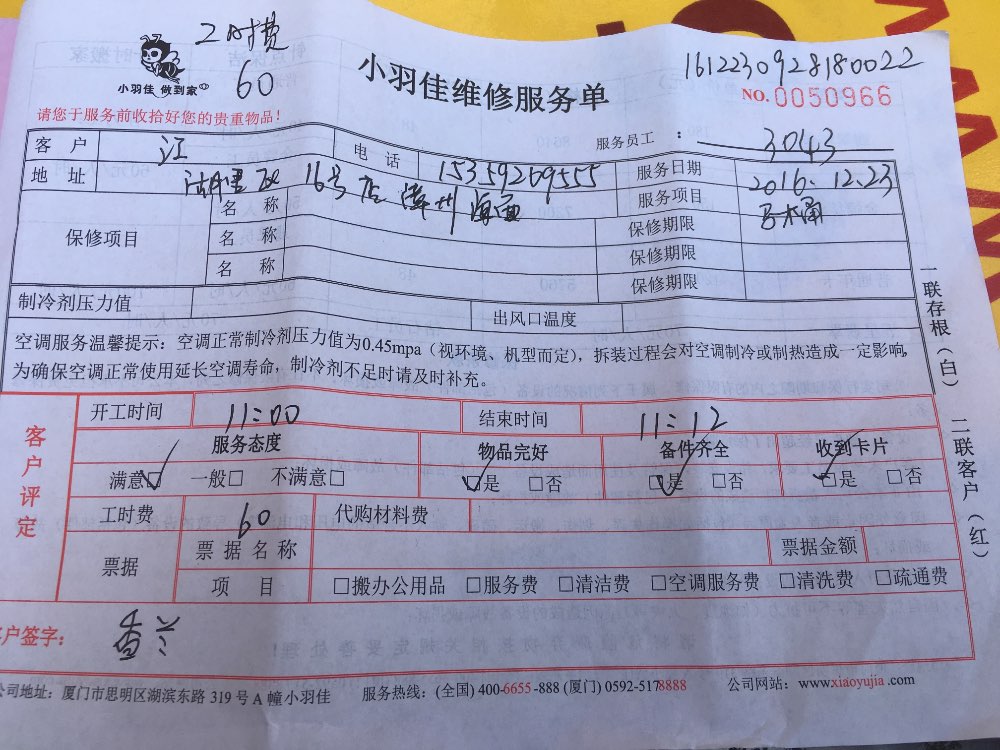 工时费
60
小羽佳 做到家
小羽佳维修服务单
1612230928180022
NO. 0050966
请您于服务前收拾好您的贵重物品!
服务员工 : 3043
客 户 江 电 话 15359269555 服务日期 2016.12.23
地 址 16号店 漳州海 服务项目
保修项目 名 称 保修期限
名 称 保修期限
名 称 保修期限
制冷剂压力值 出风口温度
空调服务温馨提示:空调正常制冷剂压力值为0.45mpa(视环境、机型而定),拆装过程会对空调制冷或制热造成一定影响,
为确保空调正常使用延长空调寿命,制冷剂不足时请及时补充。
一联存根(白) 二联客户(红)
客户评定
开工时间 11:00 结束时间 11:12
服务态度 物品完好 备件齐全 收到卡片
满意□ 一般□ 不满意□ □是 □否 □是 □否 □是 □否
工时费 60 代购材料费
票据 票据名称 票据金额
项 目 □搬办公用品 □服务费 □清洁费 □空调服务费 □清洗费 □疏通费
客户签字: 香兰
公司地址:厦门市思明区湖滨东路 319 号 A 幢小羽佳 服务热线:(全国) 400-6655-888 (厦门) 0592-5178888 公司网站:www.xiaoyujia.com